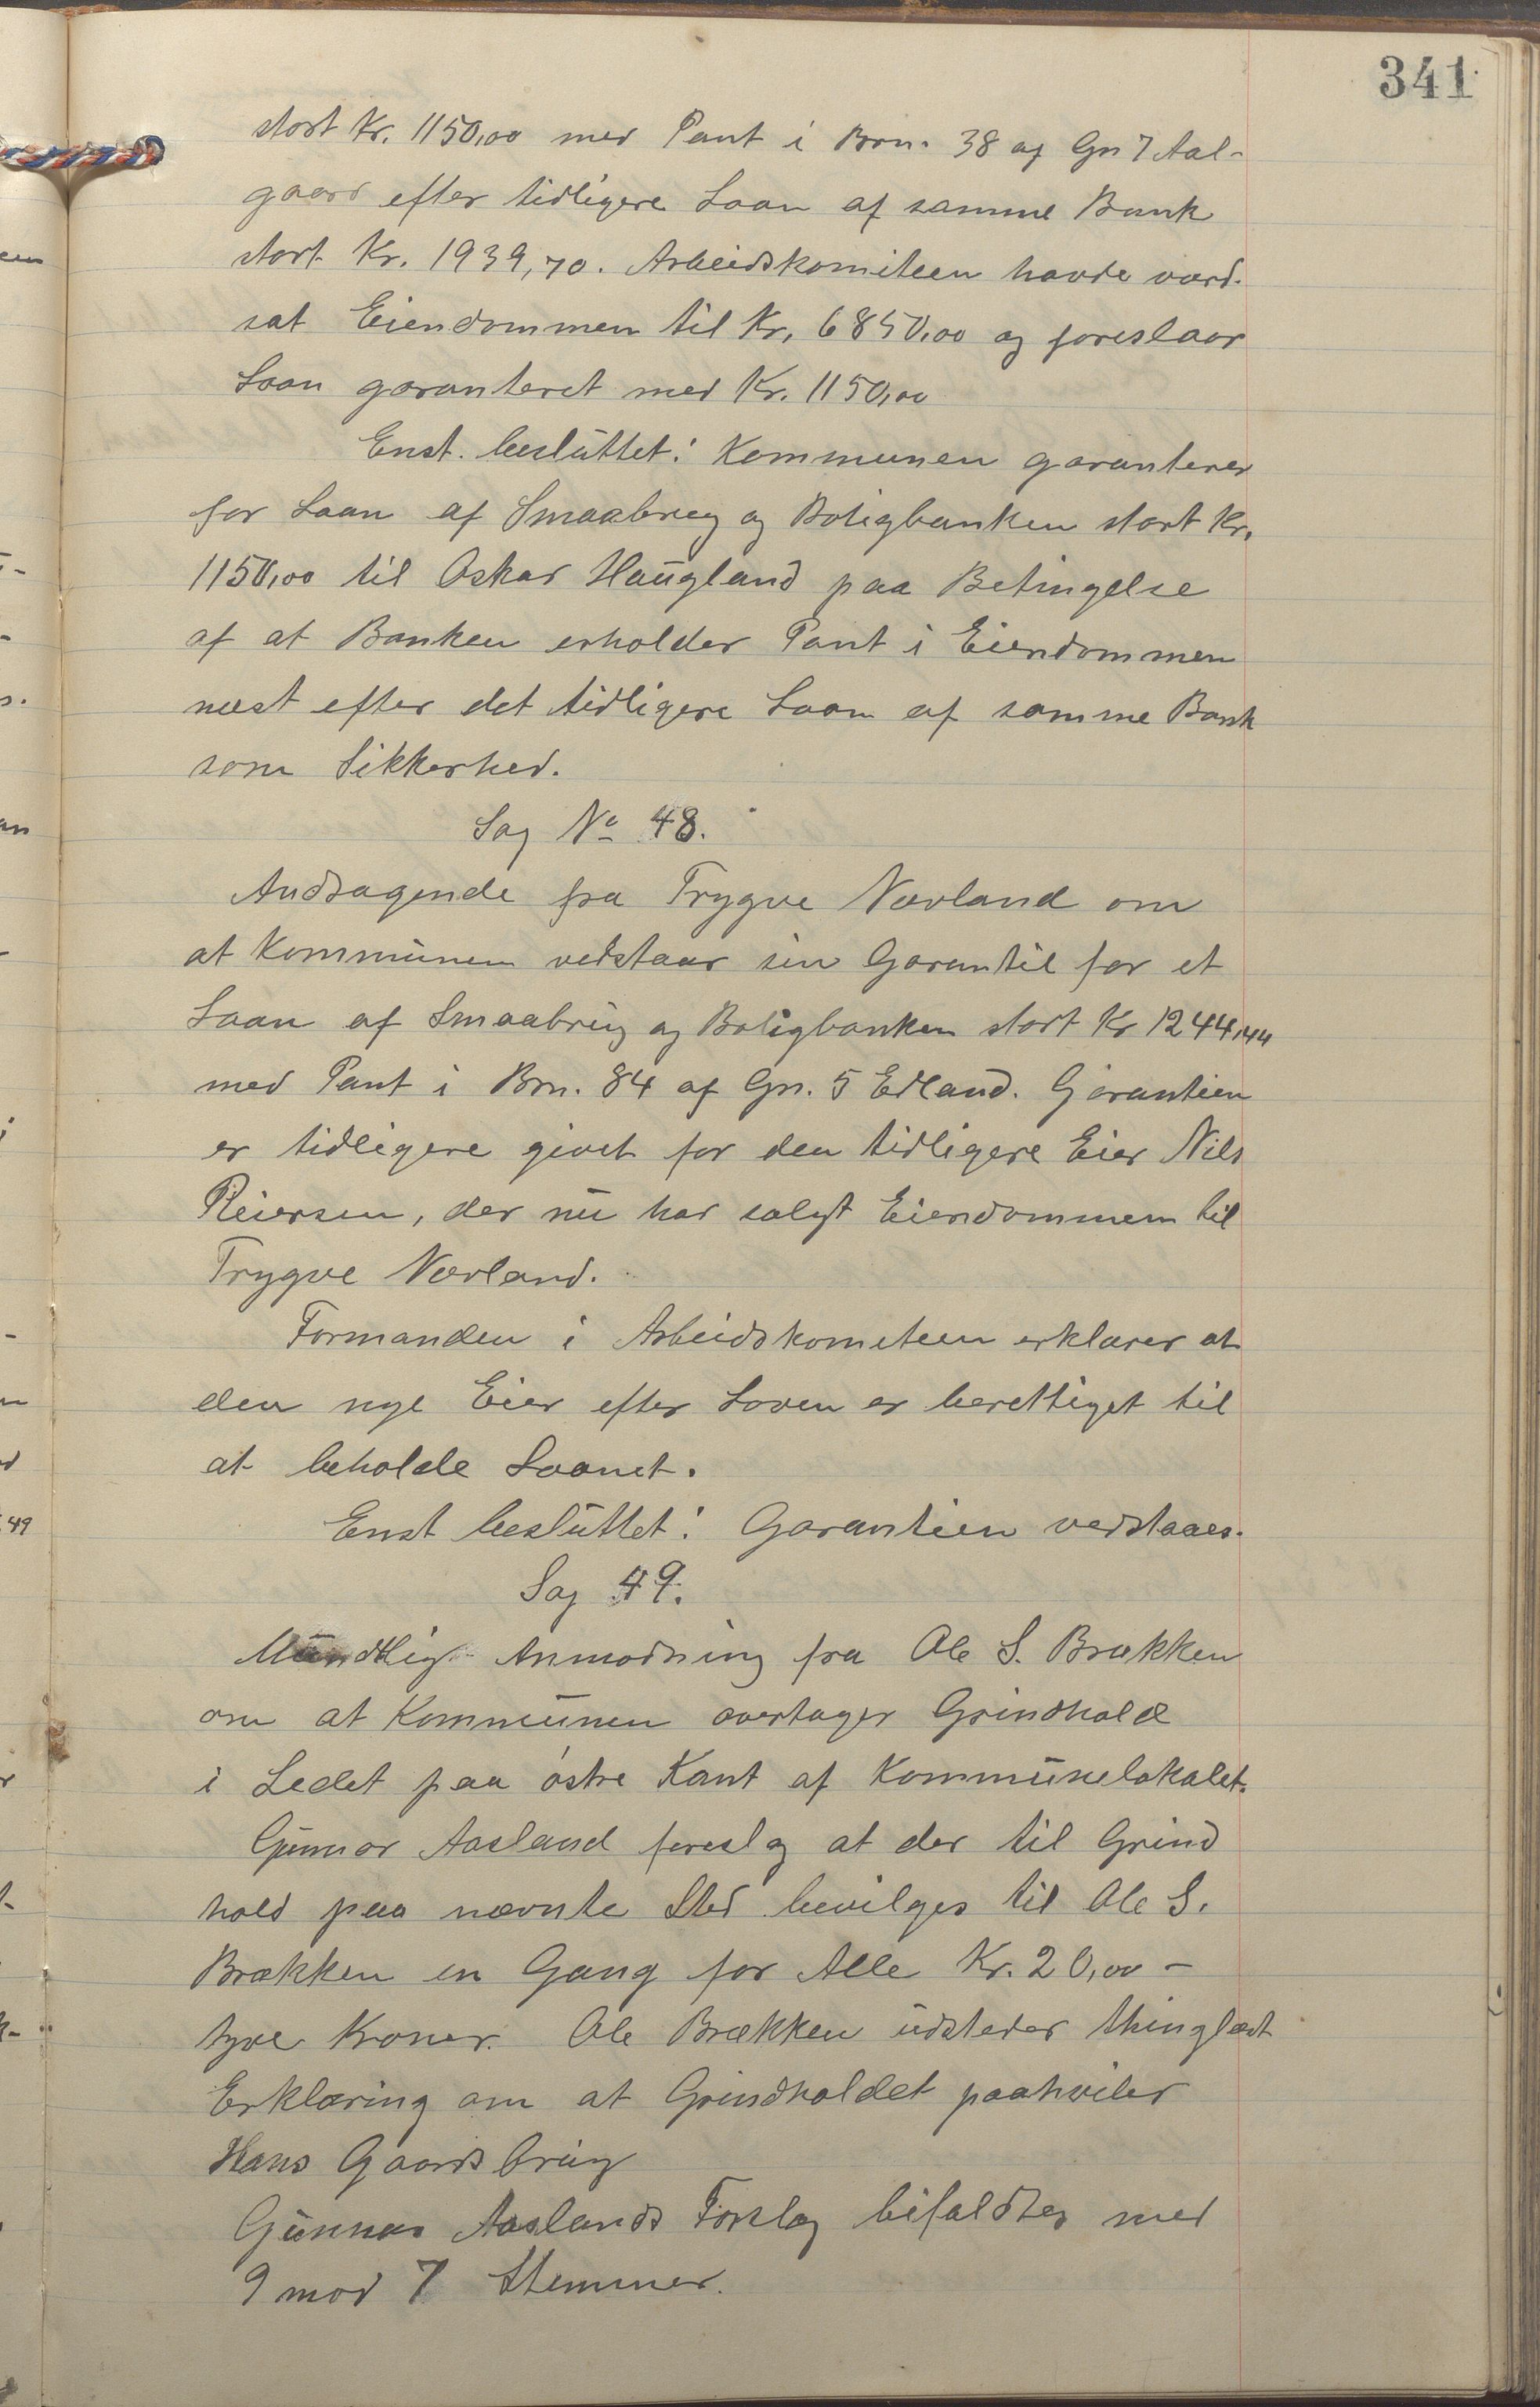 341
stort Kr. 1150,00 med Pant i Brn. 38 af Gn 7 Aal-
gaard efter tidligere Laan af samme Bank
stort Kr. 1939,70. Arbeidskomiteen havde værd-
sat Eiendommen til Kr. 6850,00 og foreslaar
Laan garanteret med Kr. 1150,00
Enst. besluttet: Kommunen garanterer
for Laan af Smaabrug og Boligbanken stort Kr.
1150,00 til Oskar Haugland paa Betingelse
af at Banken erholder Pant i Eiendommen
næst efter det tidligere Laan af samme Bank
som Sikkerhed.
Sag No 48.
Andragende fra Trygve Nærland om
at Kommunen vedstaar sin Garantil for et
Laan af Smaabrug og Boligbanken stort Kr 1244,44
med Pant i Brn. 84 af Gn. 5 Edland. Garantien
er tidligere givet for den tidligere Eier Nils
Reiersen, der nu har solgt Eiendommen til
Trygve Nærland.
Formanden i Arbeidskometeen erklærer at
den nye Eier efter Loven er berettiget til
at beholde Laanet.
Enst besluttet: Garantien vedstaaes.
Sag 49.
Mundtlig Anmodning fra Ole S. Brækken
om at Kommunen overtager Grindhold
i Ledet paa østre Kant af Kommunelokalet.
Gunnar Aasland foreslog at der til Grind
hold paa nævnte Sted bevilges til Ole S.
Brækken en Gang for Alle Kr. 20,00 -
tyve Kroner. Ole Brækken udsteder thinglæst
Erklæring om at Grindholdet paahviler
Hans Gaardsbrug
Gunnar Aaslands Forslag bifaldtes med
9 mod 7 Stemmer.